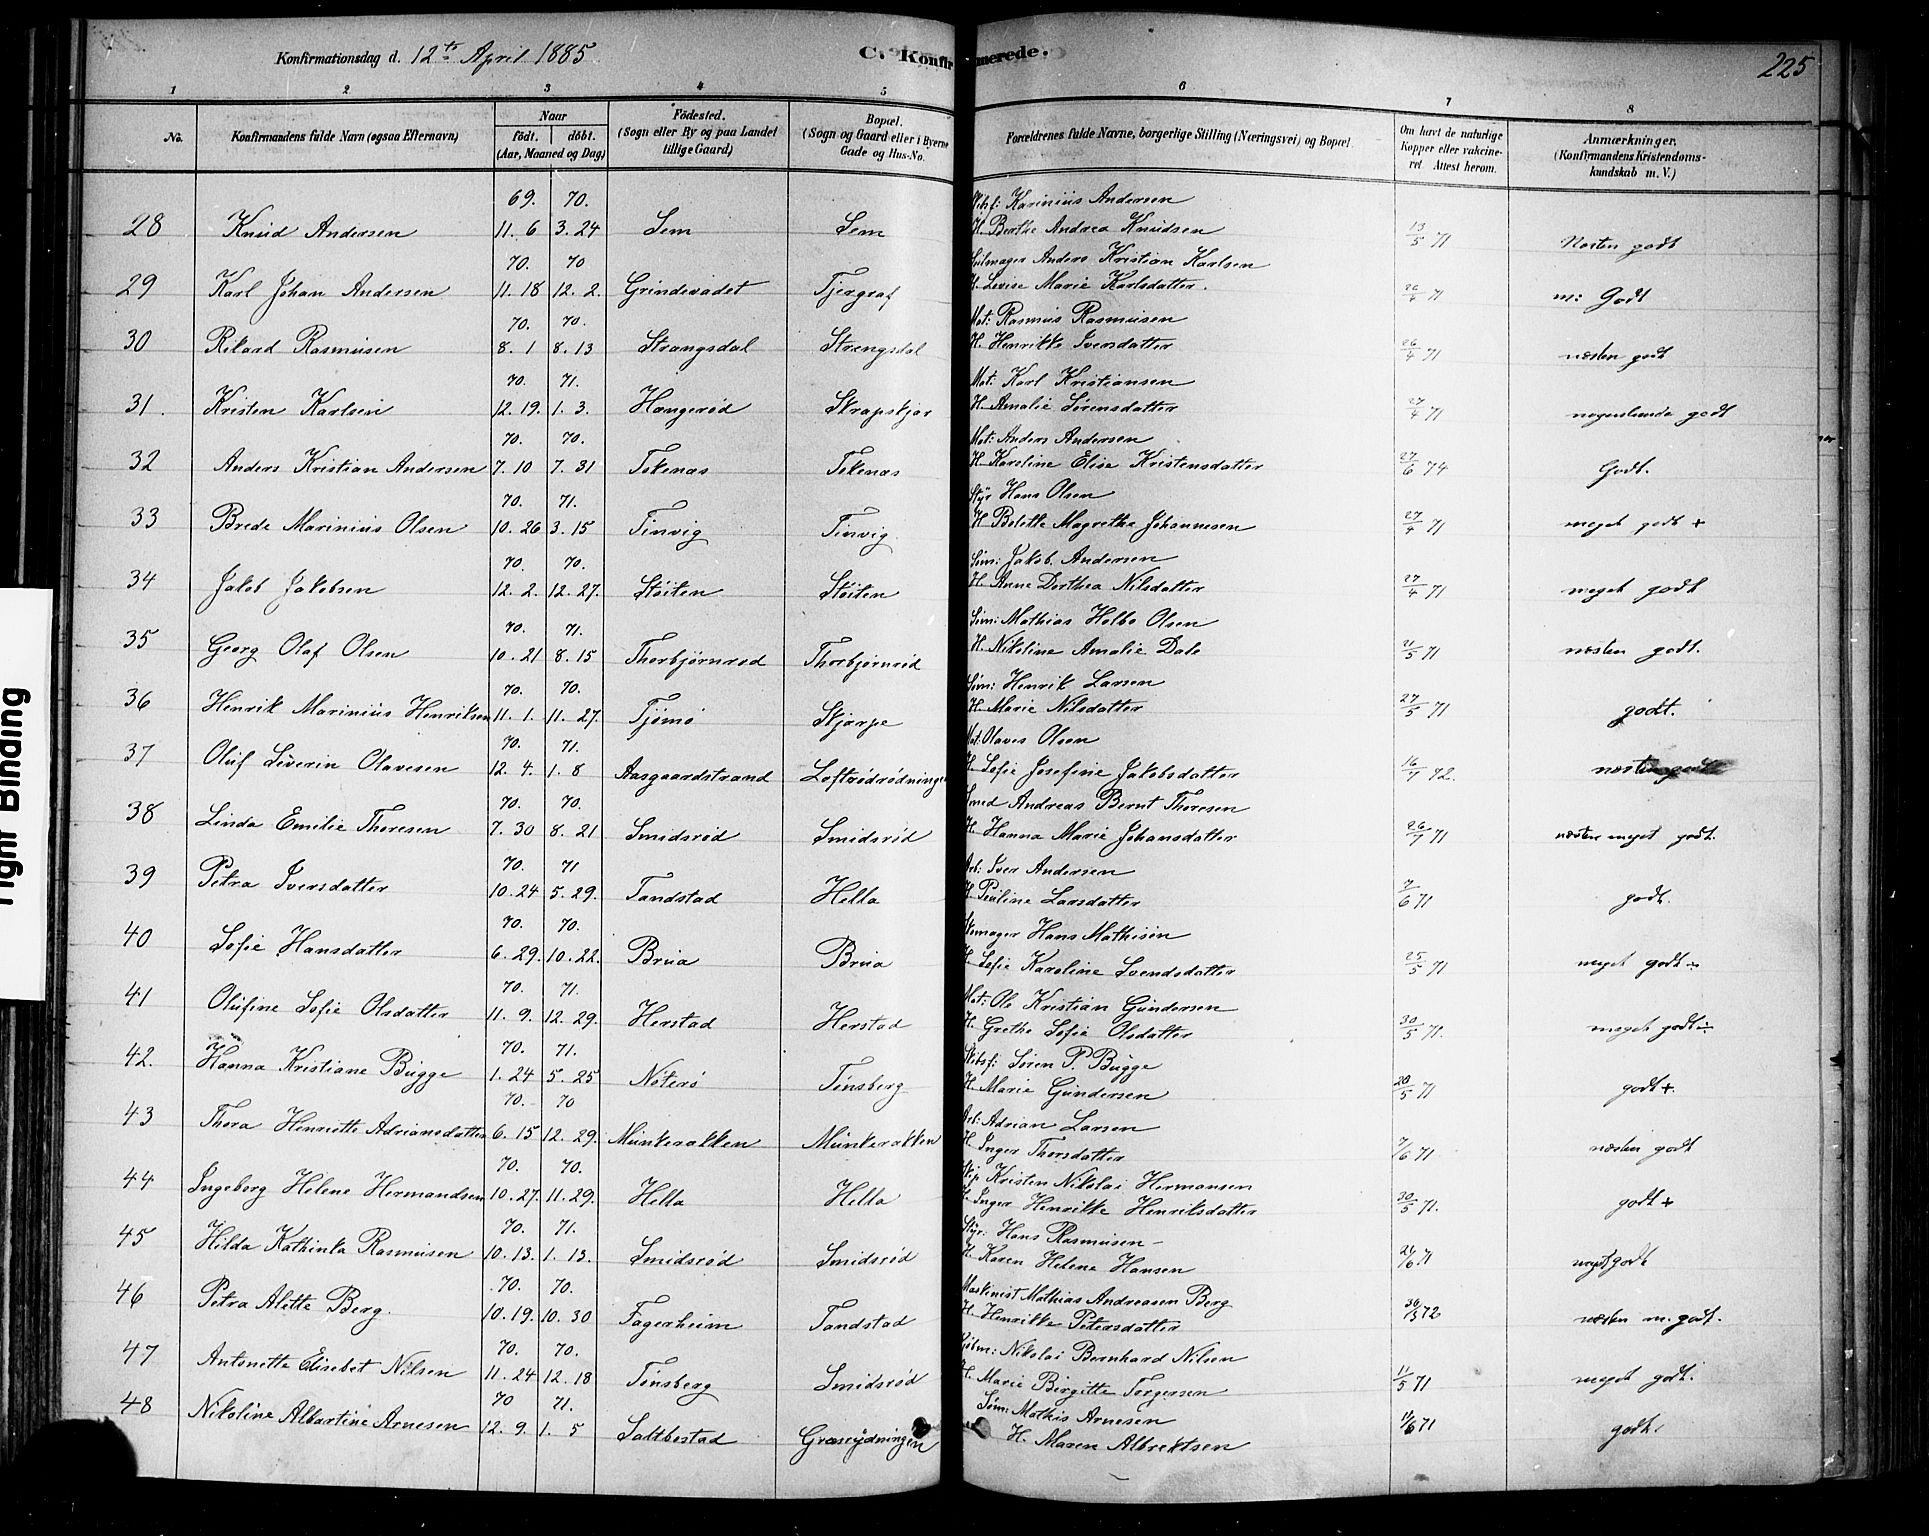 Konfirmationsdag d. 12te April 1885
C. Konfirmerede.
225
1 2 3 4 5 6 7 8
No. Konfirmandens fulde Navn (ogsaa Efternavn) Naar födt. döbt. (Aar, Maaned og Dag) Födested. (Sogn eller By og paa Landet tillige Gaard) Bopæl. (Sogn og Gaard eller i Byerne Gade og Hus-No. Forældrenes fulde Navne, borgerlige Stilling (Næringsvei) og Bopæl. Om havt de naturlige Kopper eller vakcineret Attest herom. Anmærkninger. (Konfirmandens Kristendomskundskab m. V.)
69. 70. Skibsf: Karinius Andersen
28 Knud Andersen 11. 6 3. 24 Sem Sem H. Berthe Andrea Knudsen 13/5 71 Næsten godt
70. 70 Seilmager Anders Kristian Karlsen
29 Karl Johan Andersen 11. 18 12. 2. Grindevadet H. Levise Marie Karlsdatter. 26/4 71 m: Godt
70. 70. Mat: Rasmus Rasmusen
30 Rikard Rasmusen 8. 1 8. 13 Strangsdal Strengsdal H. Henrikke Iversdatter 26/4 71 næsten godt
70. 71. Mat: Karl Kristiansen
31. Kristen Karlsen 12. 19. 1. 3. Hængerød Skrapskjær H. Amalie Sørensdatter 27/4 71 nogenlunde godt
70. 70. Mat: Anders Andersen
32 Anders Kristian Andersen 7. 10 7. 31 Tokenæs Tokenæs H. Karoline Elise Kristensdatter 27/6 74 Godt.
70. 71. Styr Hans Olsen
33 Brede Marinius Olsen 10. 26 3. 15 Tinvig Tinvig. H Bolette Magrethe Johannesen 27/4 71 meget godt +
70. 70. Søm: Jakob. Andersen
34 Jakob Jakobsen 12. 2. 12. 27. Støiten Støiten H. Anne Dorthea Nilsdatter 27/4 71 meget godt
70. 71. Søm: Mathias Holbo Olsen
35 Georg Olaf Olsen 10. 21 8. 15 Thorbjørnrød Thorbjørnrød H. Nikoline Amalie Dale 21/5 71 næsten godt.
70. 70. Søm: Henrik Larsen
36 Henrik Marinius Henriksen 11. 1. 11. 27. Tjømø Skjærpe H. Marie Nilsdatter 27/5 71 godt.
70. 71. Mat: Olaves Olsen
37 Oluf Severin Olavesen 12. 4. 1. 8 Aasgaardstrand Loftsrødrødningen H. Sofie Josefine Jakobsdatter 16/7 72. næsten godt
70. 70. Smed Andreas Bernt Thoresen
38 Linda Emilie Thoresen 7. 30 8. 21 Smidsrød Smidsrød H. Hanna Marie Johansdatter 26/7 71 næsten meget godt.
70. 71 Arb: Iver Andersen
39 Petra Iversdatter 10. 24 5. 29. Tandstad Hella H. Pauline Larsdatter 7/6 71 godt.
70. 70. Skomager Hans Mathisen
40 Sofie Hansdatter 6. 29. 10. 22. Brua Brua H. Sofie Karoline Svendsdatter 25/5 71 meget godt ÷
70. 71. Mat: Ole Kristian Gundersen
41 Olufine Sofie Olsdatter 11. 9. 12. 29. Herstad Herstad H. Grethe Sofie Olsdatter 30/5 71. meget godt ÷
70. 71. Skibsf: Søren P. Bugge
42. Hanna Kristiane Bugge 1. 24 5. 25 Nøterø Tønsberg H. Marie Gundersen 20/5 71 godt +.
70. 70 Arb: Adrian Larsen
43 Thora Henriette Adriansdatter 6. 15 12. 29. Munkerakken Munkerakken H. Inger Thorsdatter 7/6 71 næsten godt
70. 70. Skip Kristen Nikolai Hermansen
44 Ingeborg Helene Hermandsen 10. 27. 11. 29. Hella Hella H. Inger Henrikke Henriksdatter 30/5 71. godt +
70. 71. Styr. Hans Rasmusen -
45 Hilda Kathinka Rasmusen 10. 13. 1. 13. Smidsrød Smidsrød H. Karen Helene Hansen 24/6 71 meget godt
70. 70. Maskinist Mathias Andreasen Berg
46 Petra Alette Berg. 10. 19. 10. 30 Fagerheim Tandstad H. Henrikke Petersdatter 30/5 72 næsten m. godt.
70. 70. Nikolai Bernhard Nilsen
47 Antonette Elisebet Nilsen 11. 24 12. 18 Tønsberg Smidsrød H. Marie Birgitte Torgersen 11/5 71 meget godt.
70 71. Søm: Mathis Arnesen
48 Nikoline Albertine Arnesen 12. 9. 1. 5 Saltbostad H. Maren Albrektsen 11/6 71 godt.
Tight Binding